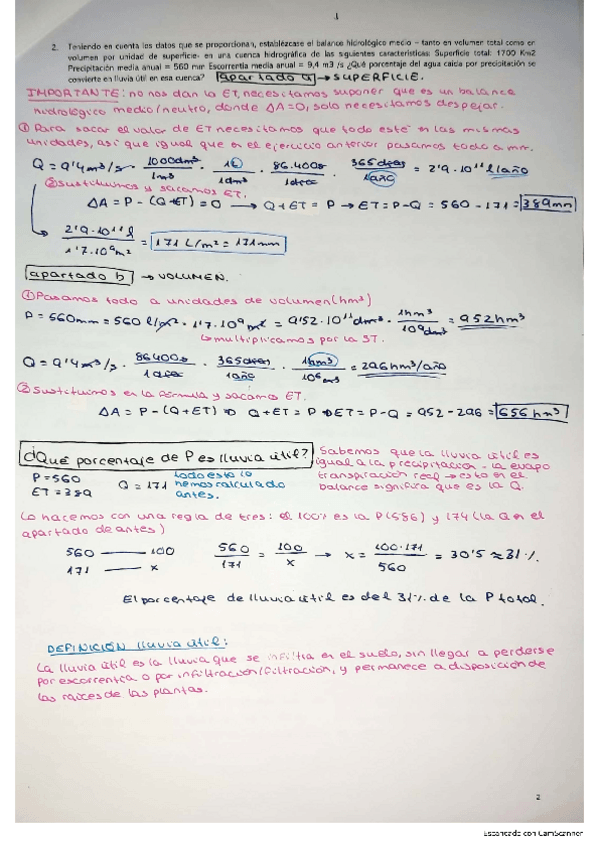 1
2. Teniendo en cuenta los datos que se proporcionan, establézcase el balance hidrológico medio – tanto en volumen total como en
volumen por unidad de superficie- en una cuenca hidrográfica de las siguientes características: Superficie total: 1700 Km2
Precipitación media anual = 560 mm Escorrentía media anual = 9,4 m3 /s ¿Qué porcentaje del agua caída por precipitación se
convierte en lluvia útil en esa cuenca? apartado a → SUPERFICIE.
IMPORTANTE: no nos dan la ET, necesitamos suponer que es un balance
hidrológico medio/neutro, donde ΔA=0, solo necesitamos despejar.
① Para sacar el valor de ET necesitamos que todo esté en las mismas
unidades, así que igual que en el ejercicio anterior pasamos todo a mm.
Q = 9'4 m³/s · 1000dm³/1m³ · 1l/ · 86.400s/1día · 365días/1año = 2'9·10¹¹ l/año
② Sustituimos y sacamos ET.
ΔA = P - (Q+ET) = 0 → Q+ET = P → ET = P-Q = 560 - 171 = 389mm
2'9·10¹¹ l / 1'7·10⁹ m² = 171 L/m² = 171mm
apartado b → VOLUMEN.
① Pasamos todo a unidades de volumen (hm³)
P = 560mm = 560 l/m² · 1'7·10⁹ m² = 9'52·10¹¹ dm³ · 1hm³/10⁹dm³ = 952hm³
↳ multiplicamos por la ST.
Q = 9'4 m³/s · 86400s/1día · 365días/1año · 1hm³/10⁶m³ = 296hm³/año
② Sustituimos en la fórmula y sacamos ET.
ΔA = P - (Q+ET) ⇒ Q+ET = P ⇒ ET = P-Q = 952 - 296 = 656 hm³
¿Qué porcentaje de P es lluvia útil?
Sabemos que la lluvia útil es
igual a la precipitación - la evapo
transpiración real → esto en el
balance significa que es la Q.
P = 560
ET = 389
Q = 171
todo esto lo
hemos calculado
antes.
Lo hacemos con una regla de tres: el 100% es la P(586) y 174 (la Q en el
apartado de antes)
560 —— 100
171 —— x
560/171 = 100/x → x = 100·171/560 = 30'5 ≈ 31%.
El porcentaje de lluvia útil es del 31% de la P total.
DEFINICIÓN lluvia útil:
La lluvia útil es la lluvia que se infiltra en el suelo, sin llegar a perderse
por escorrentía o por infiltración/filtración, y permanece a disposición de
las raíces de las plantas.
2
Escaneado con CamScanner